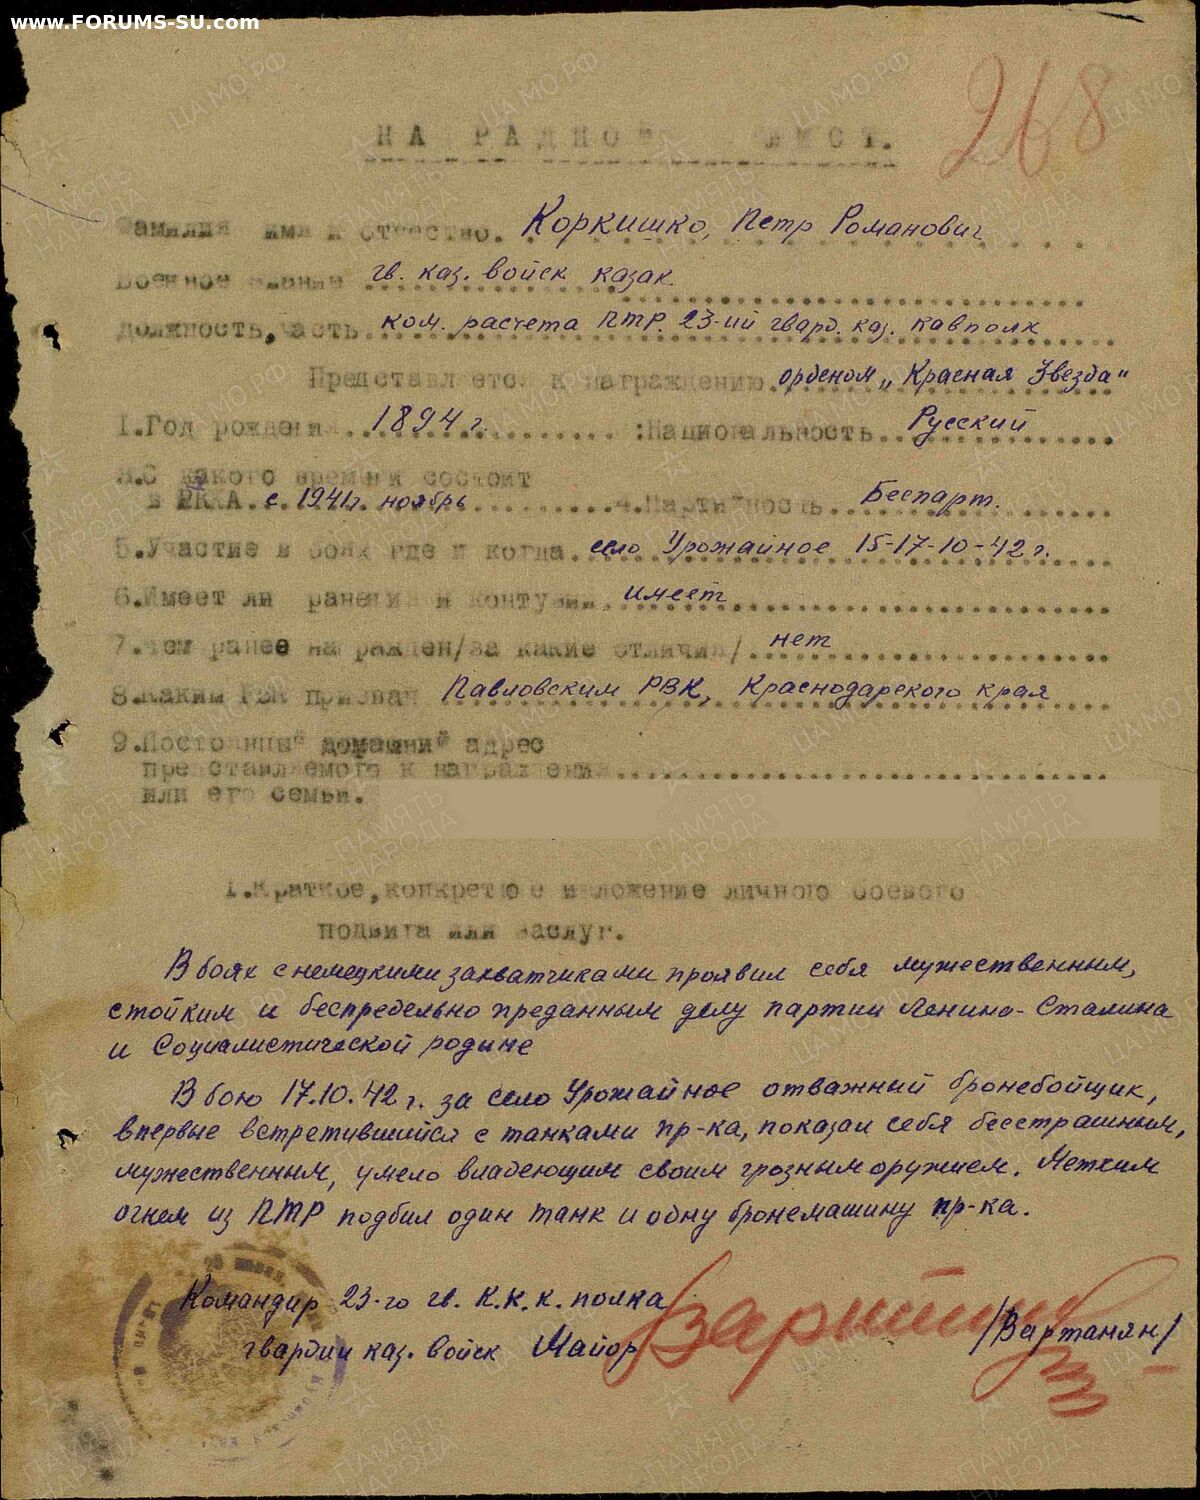 www.FORUMS-SU.com
268
НАГРАДНОЙ ЛИСТ.
Фамилия имя и отчество. Коркишко, Петр Романович
Военное звание гв. каз. войск казак
Должность, часть ком. расчета ПТР. 23-ий гвард. каз. кавполк
Представляется к награждению орденом „Красная Звезда"
1.Год рождения 1894 г. :Национальность Русский
3.С какого времени состоит
в РККА. с 1941г. ноябрь 4.Партийность Беспарт.
5.Участие в боях где и когда. село Урожайное 15-17-10-42 г.
6.Имеет ли ранения и контузии имеет
7.Чем ранее награжден/за какие отличия/ нет
8.Каким РВК призван Павловским РВК, Краснодарского края
9.Постоянный домашний адрес
представляемого к награждению
или его семьи.
1.Краткое, конкретное изложение личного боевого
подвига или заслуг.
В боях с немецкими захватчиками проявил себя мужественным,
стойким и беспредельно преданным делу партии Ленина-Сталина
и Социалистической родине
В бою 17.10.42 г. за село Урожайное отважный бронебойщик,
впервые встретившийся с танками пр-ка, показал себя бесстрашным,
мужественным, умело владеющим своим грозным оружием. Метким
огнем из ПТР подбил один танк и одну бронемашину пр-ка.
Командир 23-го гв. К.К.К. полка
гвардии каз. войск Майор /Вартанян/